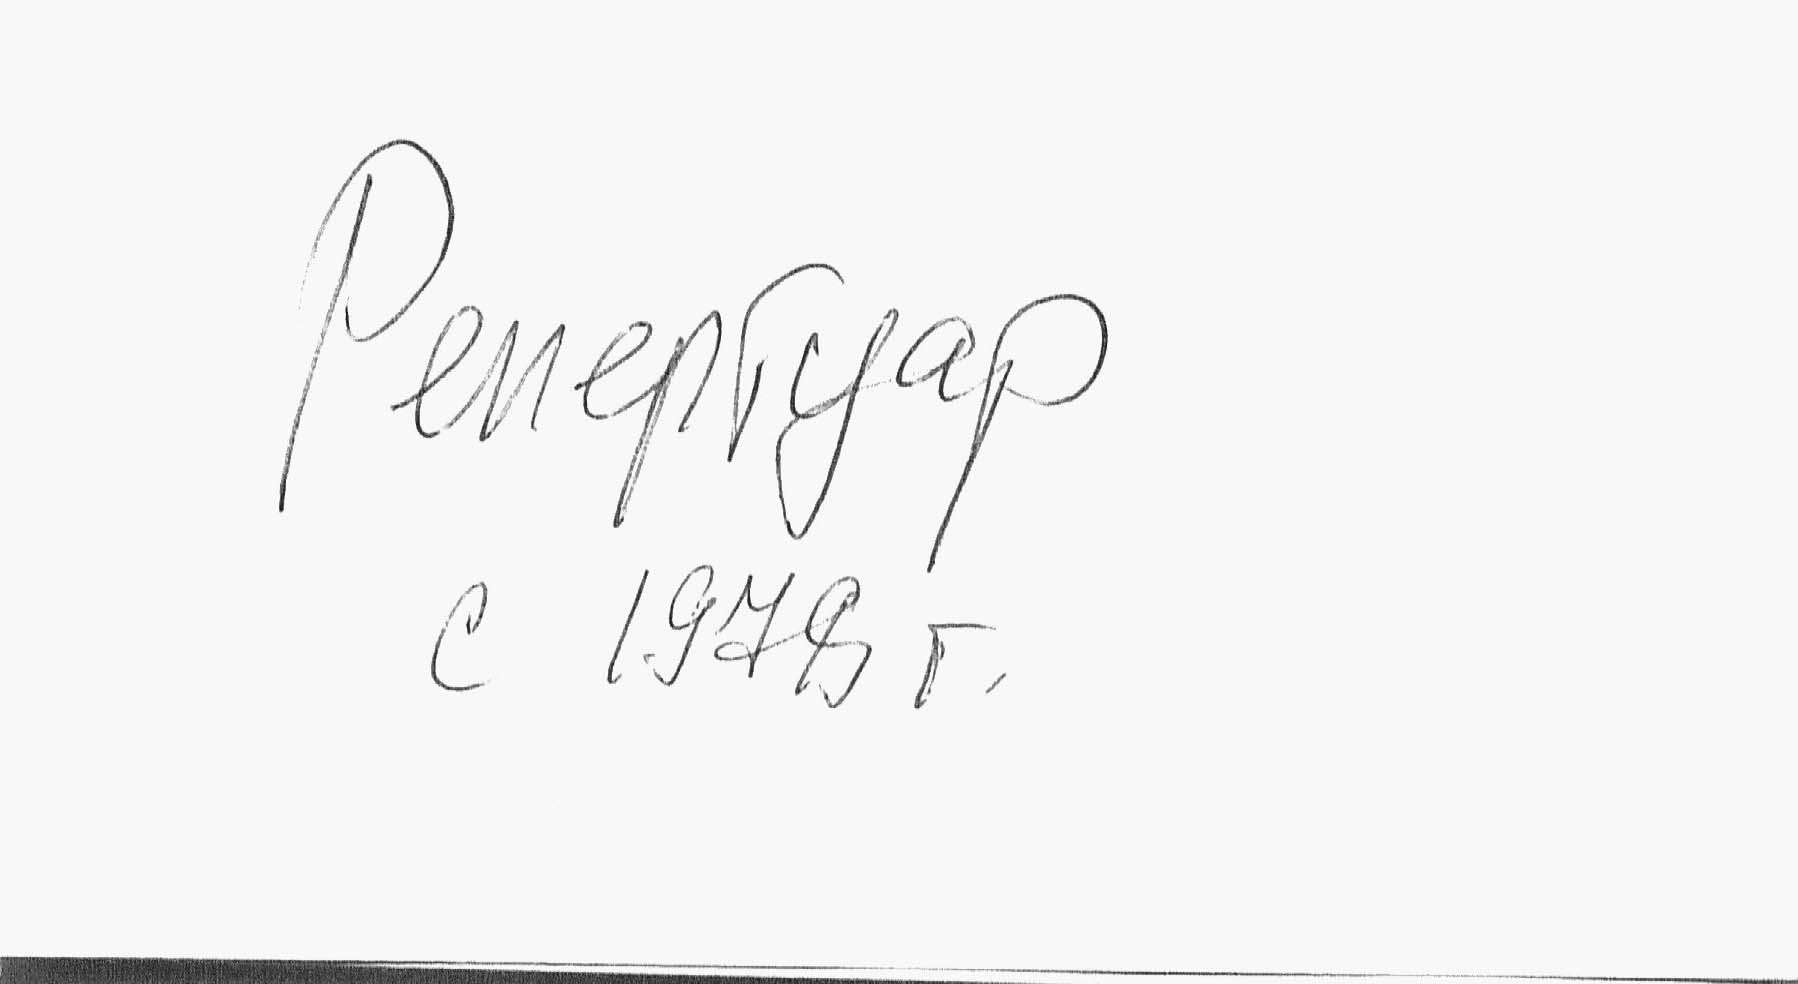 Репертуар
с 1978 г.